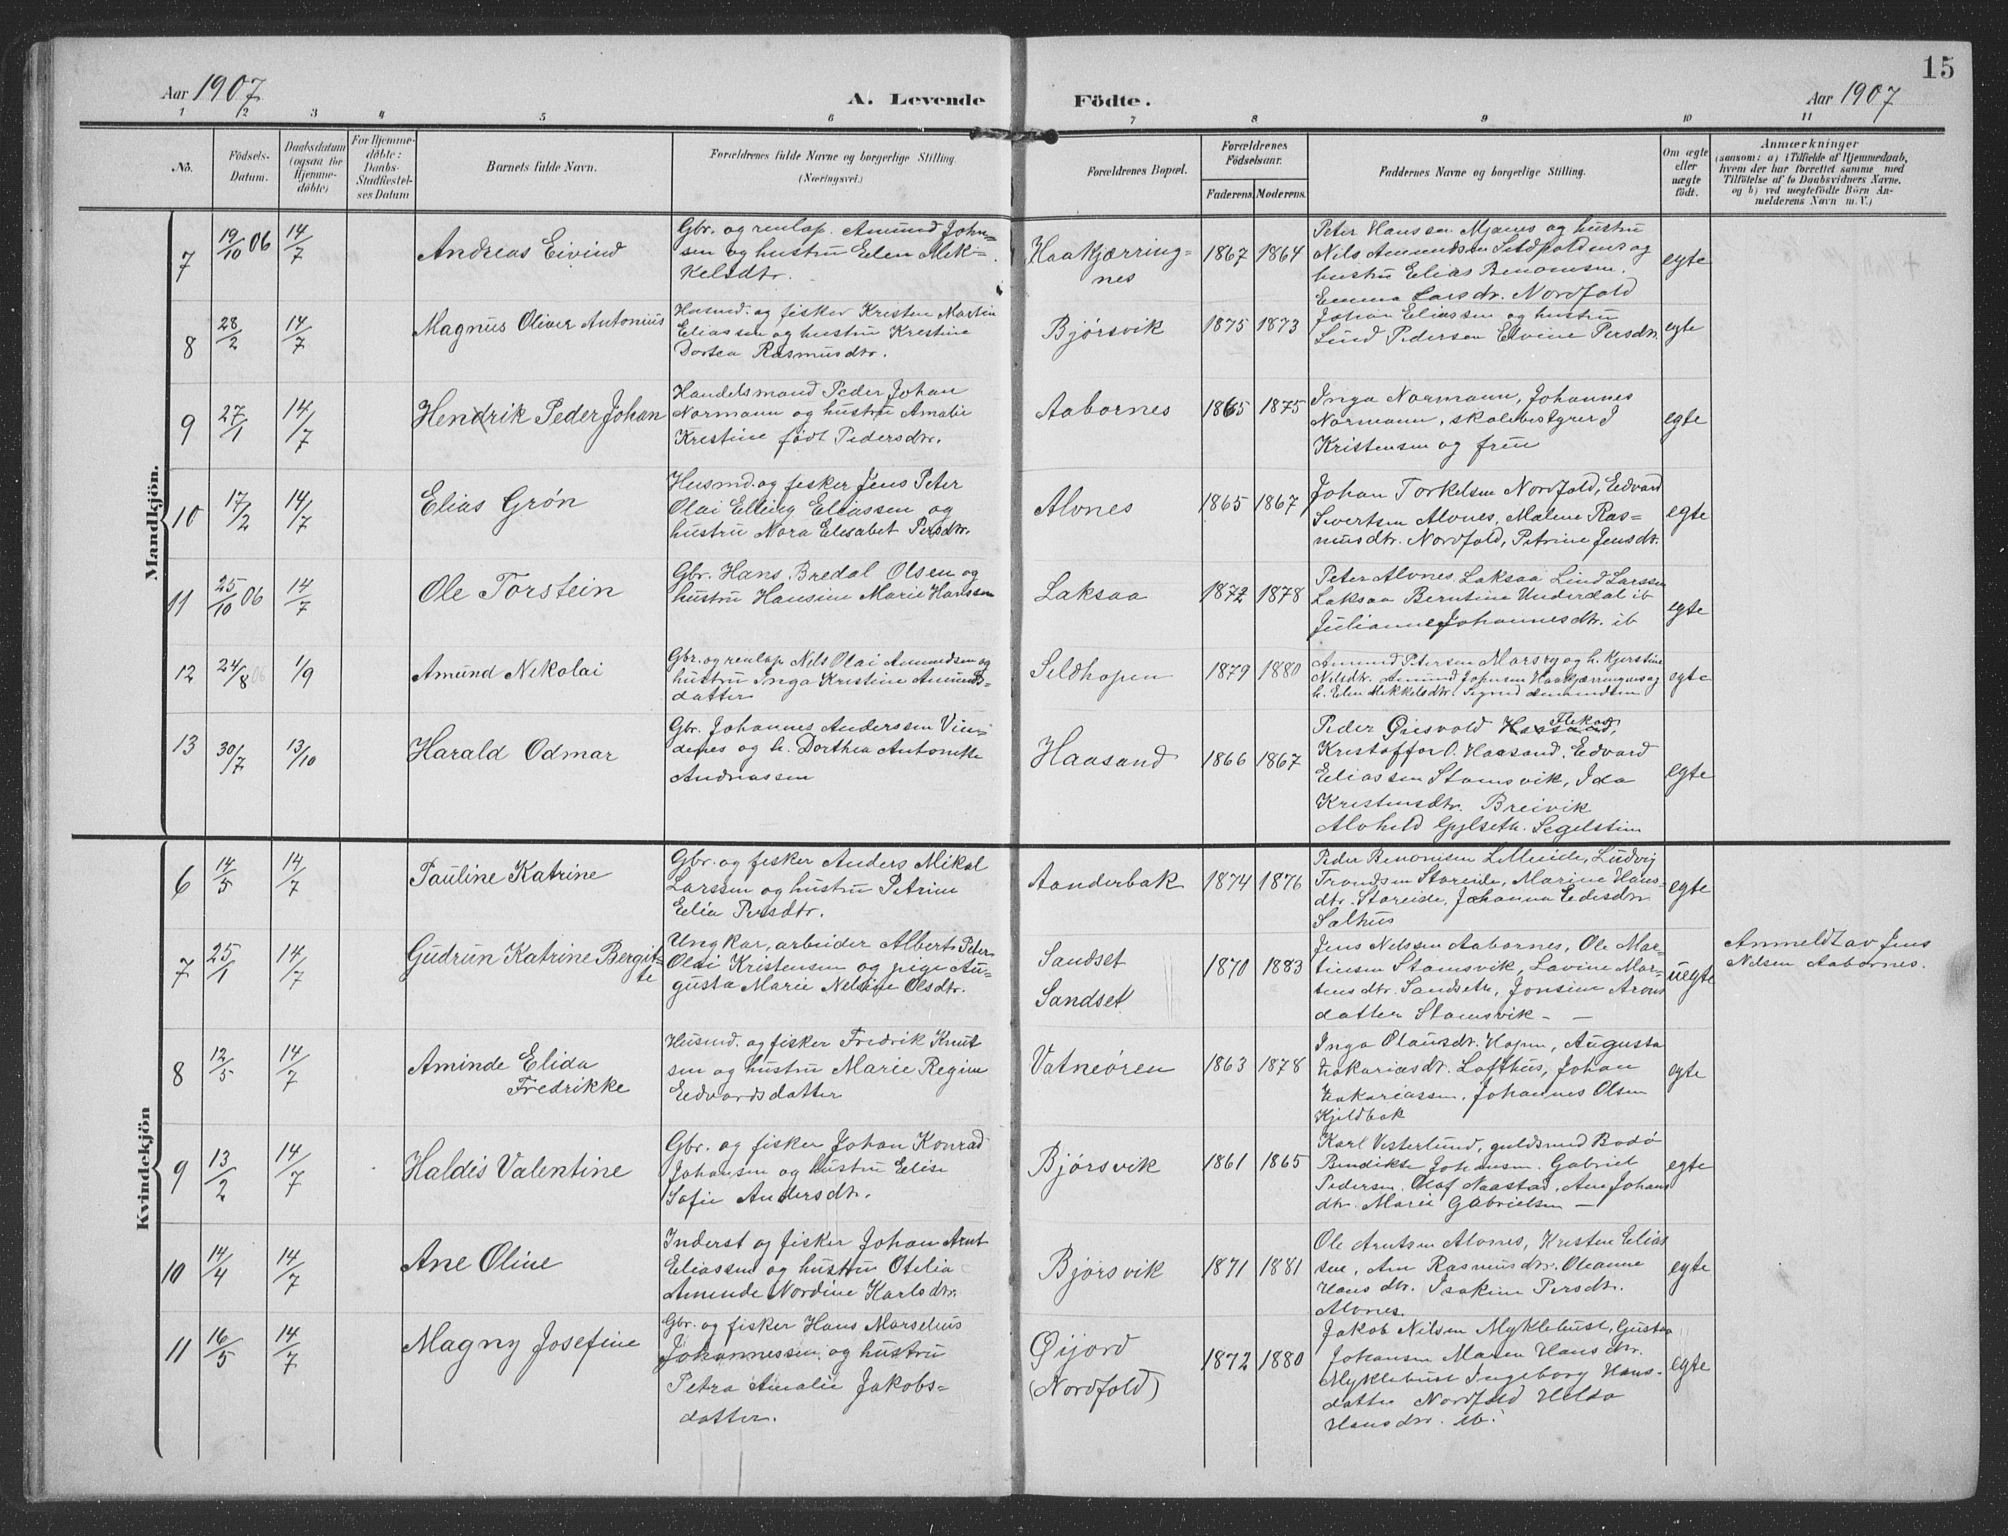 15
Aar 1907
A. Levende
Födte.
Aar 1907
1 2 3 4 5 6 7 8 9 10 11
No.
Födsels-
Datum.
Daabsdatum
(ogsaa for
Hjemme-
döbte)
For Hjemme-
döbte:
Daabs-
Stadfæstel-
ses Datum
Barnets fulde Navn.
Forældrenes fulde Navne og borgerlige Stilling.
(Næringsvei.)
Forældrenes Bopæl.
Forældrenes
Födselsaar.
Faderens. Moderens.
Faddernes Navne og borgerlige Stilling.
Om ægte
eller
uægte
födt.
Anmærkninger
(saasom: a) i Tilfælde af Hjemmedaab,
hvem der har forrettet samme med
Tilföielse af to Daabsvidners Navne,
og b) ved uægtefödte Börn An-
melderens Navn m. V.)
Mandkjön.
7 19/10 06 14/7 Andreas Eivind
Gbr. og renlap. Amund John-
sen og hustru Elen Mik-
kelsdtr.
Haakjærring-
nes
1867 1864
Peter Hanssen Mjanes og hustru
Nils Amundsen Seldpoldenes og
hustru Elias Benonisen.
Emma Larsdr. Nordfold
egte
8 28/2 14/7 Magnus Oliver Antonius
Husmd. og fisker Kristen Martin
Eliassen og hustru Kristine
Dortea Rasmusdtr.
Bjørsvik
1875 1873
Johan Eliassen og hustru
Lind Pedersen Elvine Persdtr.
egte
9 27/1 14/7 Hendrik Peder Johan
Handelsmand Peder Johan
Normann og hustru Amalie
Kristine født Pedersdtr.
Aabornes
1865 1875
Inga Normann, Johannes
Normann, skolebestyrer J
Kristensen og frue
egte
10 17/2 14/7 Elias Grøn
Husmd. og fisker Jens Peter
Olai Elling Eliassen og
hustru Nora Elisabet Persdtr.
Alvnes
1865 1867
Johan Torkelsen Nordfold, Edvard
Sivertsen Alvnes, Malene Ras-
musdtr. Nordfold, Petrine Jensdtr.
egte
11 25/10 06 14/7 Ole Torstein
Gbr. Hans Bredal Olsen og
hustru Hansine Marie Hanssen
Laksaa
1872 1878
Peter Alvnes Laksaa Lind Larssen
Laksaa Berntine Underdal ib
Julianne Johannesdtr. ib
egte
12 24/8 06 1/9 Amund Nikolai
Gbr. og renlap Nils Olai Amundsen og
hustru Inga Kristine Amunds-
datter
Seldhopen
1879 1880
Amund Petersen Marsry og h. Kjerstine
Nilsdtr. Amund Johnsen Haakjærringnes og
h. Elen Mikkelsdtr. Sigrid Amundsen
egte
13 30/7 13/10 Harald Odmar
Gbr. Johannes Anderssen Vin-
denes og h. Dorthea Antonette
Andreassen
Haasand
1866 1867
Peder Øisvold Haasand,
Kristoffer O. Haasand. Edvard
Eliassen Stamsvik, Ida
Kristensdtr. Breivik
Alvhild Gylseth. Segelstein
egte
Kvindekjön
6 14/5 14/7 Pauline Katrine
Gbr. og fisker Anders Mikal
Larssen og hustru Petrine
Edia Persdtr.
Aanderbak
1874 1876
Peder Benonisen Lilleide, Ludvig
Trondsen Storeide, Marine Hans-
dtr. Storeide, Johanna Edisdtr.
Salhus
egte
7 25/1 14/7 Gudrun Katrine Bergit-
te
Ungkar, arbeider Albert Peter
Olai Kristensen og pige Au-
gusta Marie Nelsine Olsdtr.
Sandset
Sandset
1870 1883
Jens Nelssen Aabornes, Ole Mar-
tinsen Stamsvik, Lavine Mar-
tensdtr. Sandseth, Jonsine Arons
datter Stamsvik - -
uegte
Anmeldt av Jens
Nelsen Aabornes.
8 12/5 14/7 Aminde Elida
Fredrikke
Husmd. og fisker Fredrik Knut
sen og hustru Marie Regine
Edvardsdatter
Vatneøren
1863 1878
Inga Olausdtr. Hopen, Augusta
Zakariasdtr. Lofthus, Johan
Zakariassen, Johannes Olsen
Kjeldbak
egte
9 13/2 14/7 Haldis Valentine
Gbr. og fisker Johan Konrad
Johansen og hustru Elise
Sofie Andersdtr.
Bjørsvik
1861 1865
Karl Vesterlund, guldsmed Bodø
Bendikte Johansen. Gabriel
Pedersen, Olaf Naastad, Ane Johans
dtr. Marie Gabrielsen -
egte
10 14/4 14/7 Ane Oline
Inderst og fisker Johan Arnt
Eliassen og hustru Otelia
Aminde Nordine Karlsdtr.
Bjørsvik
1871 1881
Ole Arntsen Alvnes, Kristen Elias
sen, Ane Rasmusdtr. Oleanne
Hansdtr. Isakine Persdtr.
Alvnes.
egte
11 16/5 14/7 Magny Josefine
Gbr. og fisker Hans Marselius
Johannessen og hustru
Petra Amalie Jakobs-
datter.
Øijord
(Nordfold)
1872 1880
Jakob Nilsen Myklebust, Gustav
Johansen Maren Hansdtr.
Myklebust Ingeborg Hans-
datter Nordfold Hilda
Hansdtr. ib.
egte